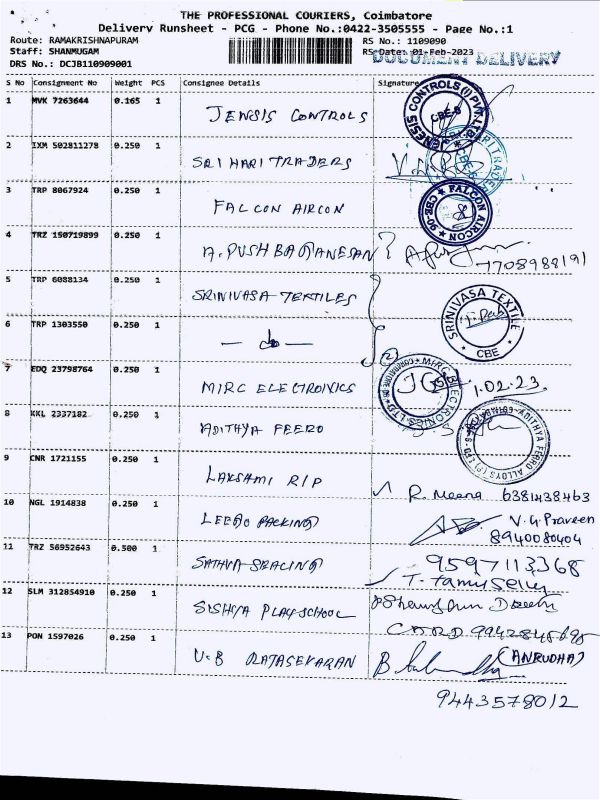 THE PROFESSIONAL COURIERS, Coimbatore
Delivery Runsheet - PCG - Phone No.:0422-3505555 - Page No.:1
Route: RAMAKRISHNAPURAM
RS No.: 1109090
Staff: SHANMUGAM
RS Date: 01-Feb-2023
DOCUMENT DELIVERY
DRS No.: DCJB110909001
S No Consignment No Weight PCS Consignee Details Signature
1 MVK 7263644 0.165 1 JENSIS CONTROLS
GENESIS CONTROLS (I) PVT. LTD. CBE-6
2 IXM 502811278 0.250 1 SRI HARI TRADERS
3 TRP 8067924 0.250 1 FALCON AIRCON
FALCON AIRCON CBE-06
4 TRZ 150719899 0.250 1 A. PUSHBAGANESAN
7708988191
5 TRP 6088134 0.250 1 SRINIVASA TEXTILES
SRINIVASA TEXTILE CBE
6 TRP 1303550 0.250 1 — do —
7 EDQ 23798764 0.250 1 MIRC ELECTRONICS
MIRC ELECTRONICS LTD
1.02.23
8 KKL 2337182 0.250 1 ADITHYA FEERO
ADITHYA FERRO ALLOYS (P) LTD
9 CNR 1721155 0.250 1 LAKSAMI RIP R. Meena 6381438463
10 NGL 1914838 0.250 1 LEEGO PACKING V.G. Praveen
8940080404
11 TRZ 56952643 0.500 1 SATHYA SRACING 9597113368
T. Tamil Selvi
12 SLM 312854910 0.250 1 SISHYA PLAY SCHOOL
13 PON 1597026 0.250 1 V.B RAJASEKARAN (ANRUDHA)
9443578012